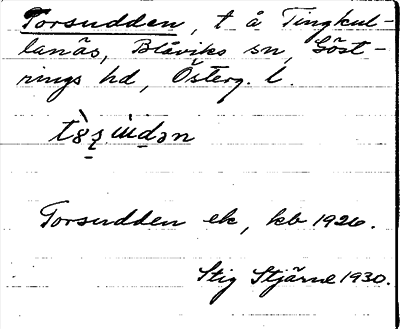 Torsudden, t å Tingkul-
lanäs, Blåviks sn, Göst-
rings hd, Österg. l.
Torsudden ek, kb 1926.
Stig Stjärne 1930.